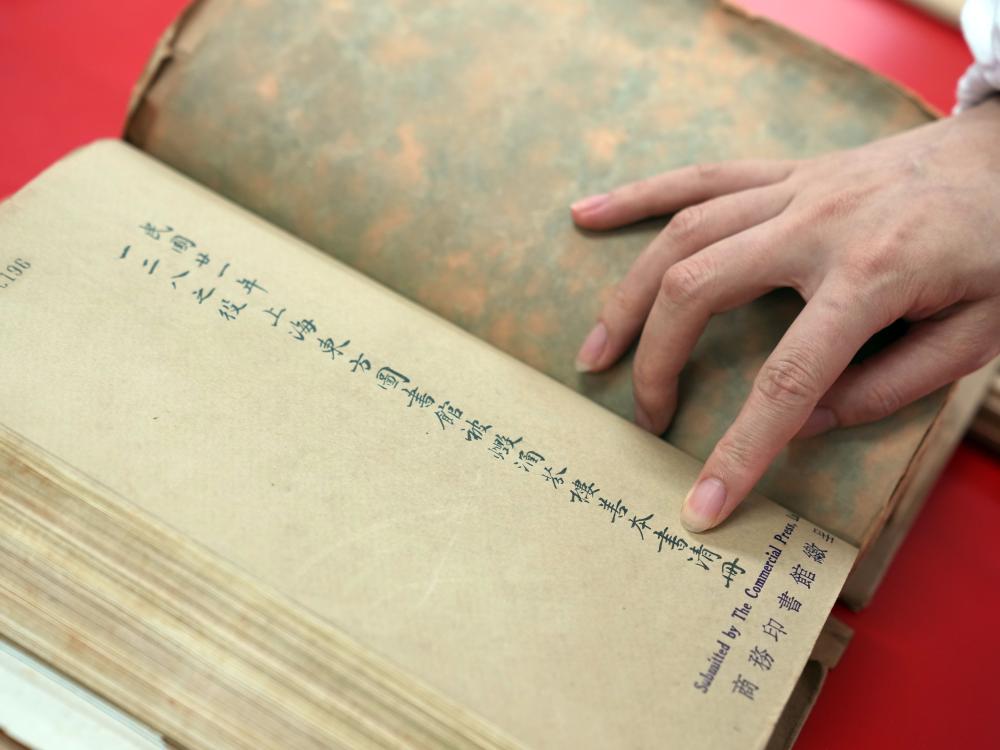 民國廿一年
一二八之役
上海東方圖書館被燬涵芬樓善本書清冊
Submitted by The Commercial Press,
商務印書館繳
196